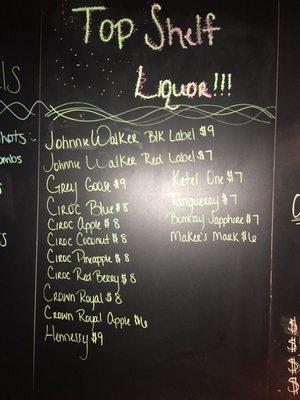 Top Shelf
Liquor!!!
Johnnie Walker Blk Label $9
Johnnie Walker Red Label $7
Grey Goose $9
Ciroc Blue $8
Ciroc Apple $8
Ciroc Coconut $8
Ciroc Pineapple $8
Ciroc Red Berry $8
Crown Royal $8
Crown Royal Apple $6
Hennessy $9
Ketel One $7
Tanqueray $7
Bombay Sapphire $7
Maker's Mark $6